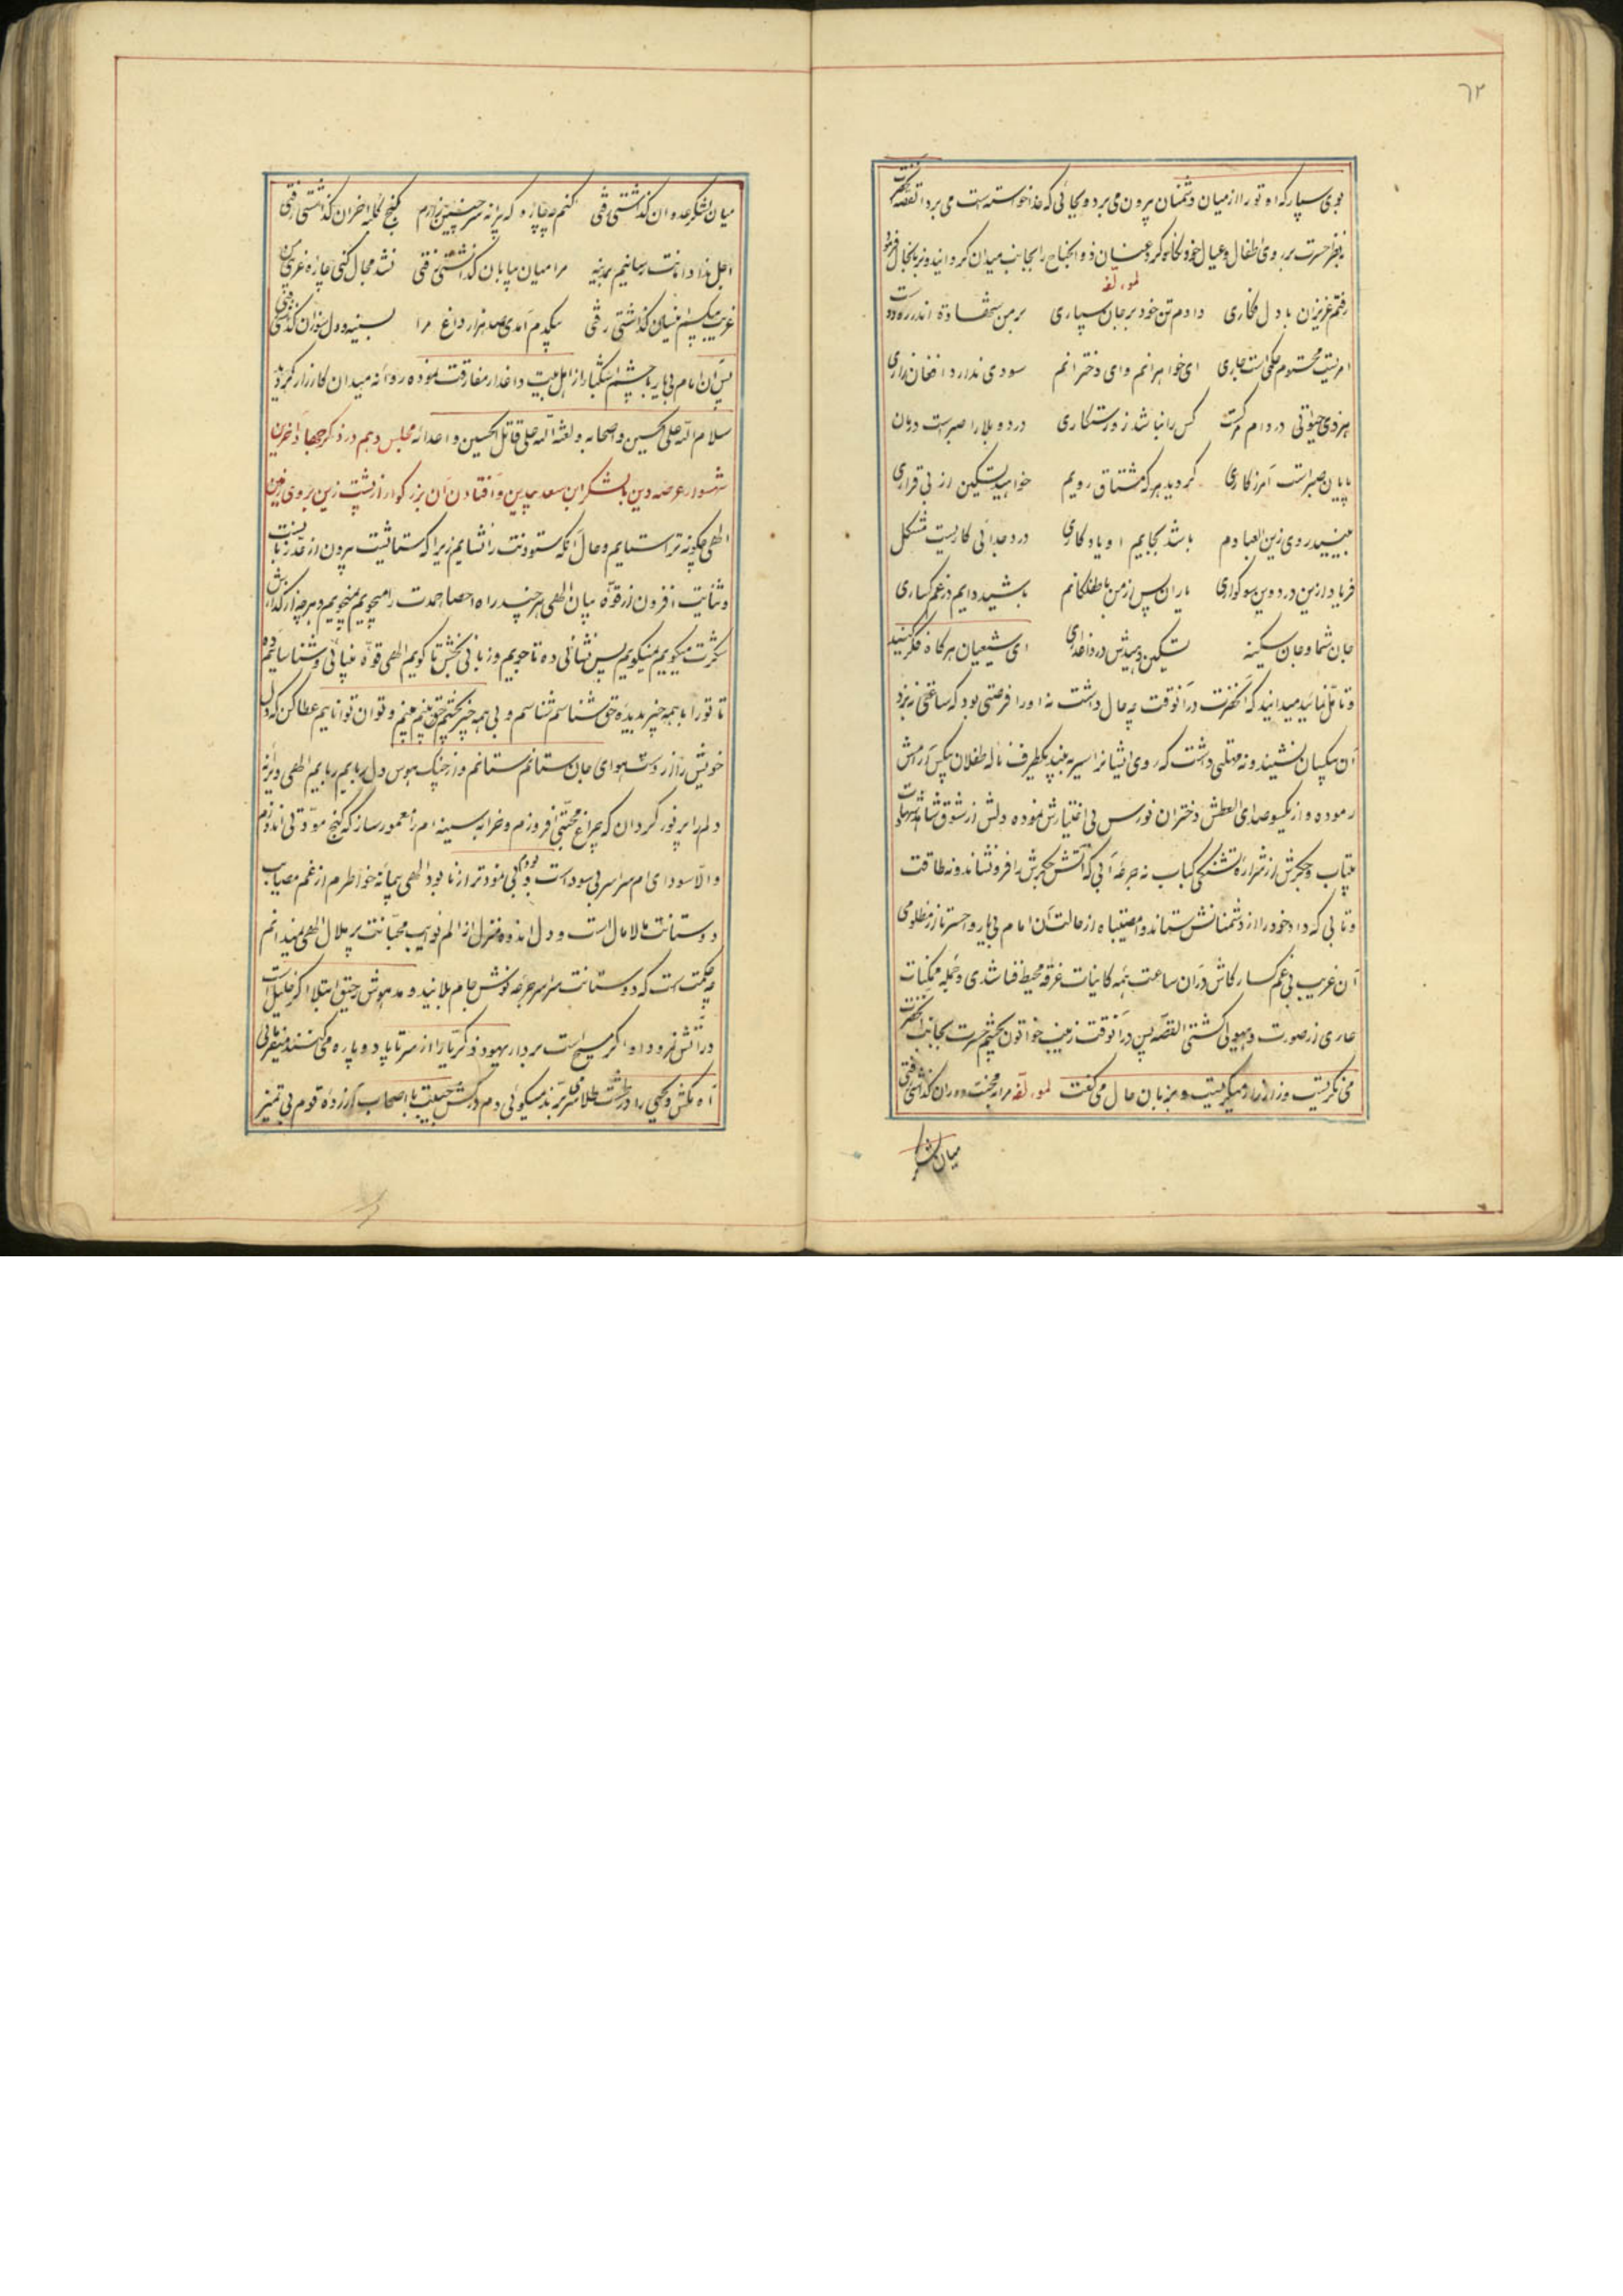 ٦٢
بوی سپار که او تو را از میان دشمنان بیرون می برد و بجائی که خدا خواسته است می برد القصه حضرت
بنظر حسرت بر روی اطفال و عیال خود نگاه کرد و عنان ذو الجناح را بجانب میدان گردانید و بزبان حال فرمود
لمؤلفه
رفتم عزیزان با دل فکاری دادم تن خود بر جان سپاری بر من
امریست محتوم حکمی است جاری ای خواهرانم وای دخترانم سودی ندارد افغان و زاری
هر ذی حیوتی در دام مرگست کس را نباشد زو رستکاری درد و بلا را صبر است درمان
پایان صبر است آمرزکاری گردید هر که مشتاق رویم خواهید تسکین از بی قراری
ببینید روی زین العبادم باشد بجایم او یادکاری درد جدائی کاریست مشکل
فریاد ازین درد وین سوکواری یاران پس از من با طفلکانم باشید دایم در غم کساری
جان شما و جان سکینه تسکین دهیدش در داغداری ای شیعیان هر کاه فکر کنید
و تامل نمائید میدانید که آنحضرت در آنوقت چه حال داشت نه او را فرصتی بود که ساعتی نزد
آن بیکسان نشیند و نه مهلتی داشت که روی ایشانرا سیر به بیند یکطرف ناله طفلان بیکس آرامش
ربوده و از یکسو صدای العطش دختران نورس بی اختیارش نموده دلش از شوق شاهد شهادت
بیتاب و جکرش از شراره تشنکی کباب نه جرعه آبی که آتش جکرش را فرونشاند و نه طاقت
و تابی که داد خود را از دشمنانش ستاند وا مصیبتاه از حالت آن امام بی یار وا حسرتا از مظلومی
آن غریب بی غمکسار کاش در آن ساعت همه کاینات غرقه محیط فنا شدی و جمله ممکنات
عاری از صورت و هیولی کشتی القصه پس در آنوقت زینب خواتون بچشم حسرت بجانب آنحضرت
می نکریست و زار زار میکریست و بزبان حال می کفت لمؤلفه مرا به محنت دوران کذاشتی رفتی
میان لشکر
میان لشکر عدوان کذاشتی رفتی کنم چه چاره و که برانه سر چنین زارم بکنج کلبه احزان کذاشتی رفتی
اجل نداد امانت رسانیم بمدینه مرا میان بیابان کذاشتی رفتی نشد مجال کنی چاره غریبی من
غریب بیکسم اینسان کذاشتی رفتی بیکدم آمدی صد هزار داغ مرا بسینه و دل سوزان کذاشتی رفتی
پس آن امام بی یار با چشم اشکبار از اهل بیت داغدار مفارقت نموده روانه میدان کارزار گردید
سلام الله علی الحسین و اصحابه و لعنة الله علی قاتل الحسین و اعدائه مجلس دهم در ذکر جهاد آخرین
شهسوار عرصه دین با لشکر ابن سعد بیدین و افتادن آن بزرکوار از پشت زین بر روی زمین
الهی چکونه ترا ستایم و حال آنکه ستودنت را نشایم زیرا که ستائشت بیرون از حد زبانست
و ثنایت افزون از قوه بیان الهی هر چند راه احصا حمدت را میجویم نمیجویم و هر چه از
شکرت میکویم نمیکویم پس نشانی ده تا جویم و زبانی بخش تا کویم الهی قوه بینائی و شناسائیم ده
تا تو را با همه چیز بدیده حق شناسم شناسم و بی همه چیز بچشم حق بینم بینم و توان توانائیم عطا کن که دل
خویش را از دست هوای جان ستانم ستانم و از چنک هوس دل ربایم ربایم الهی ویرانه
دلم را پر نور کردان که چراغ محبتی افروزم و خرابه سینه ام را معمور ساز که کنج مودتی اندوزم
و الا سودای ام سراسر بی سود است و بودم بی نمودتر از نابود الهی پیمانه خواطرم از غم مصایب
دوستانت مالامال است و دل اندوه منزل از الم نوایب محبانت پر ملال الهی نمیدانم
چه حکمت است که دوستانت سراسر جرعه نوش جام بلایند و مدهوش رحیق ابتلا اگر خلیل است
در آتش نمرود و اگر مسیح است بر دار یهود زکریا را از سر تا پا دو پاره می کنند
آه مکش و یحیی را در طشت طلا سر می برند میکوئی دم درکش حبیبت با اصحاب آزرده قوم بی تمیز